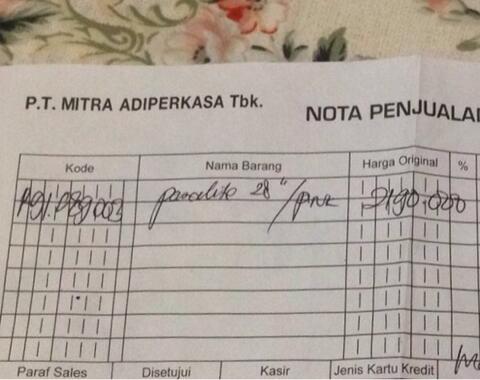 P.T. MITRA ADIPERKASA Tbk.
NOTA PENJUALA
Kode Nama Barang Harga Original %
28" / 2190.000
Paraf Sales Disetujui Kasir Jenis Kartu Kredit